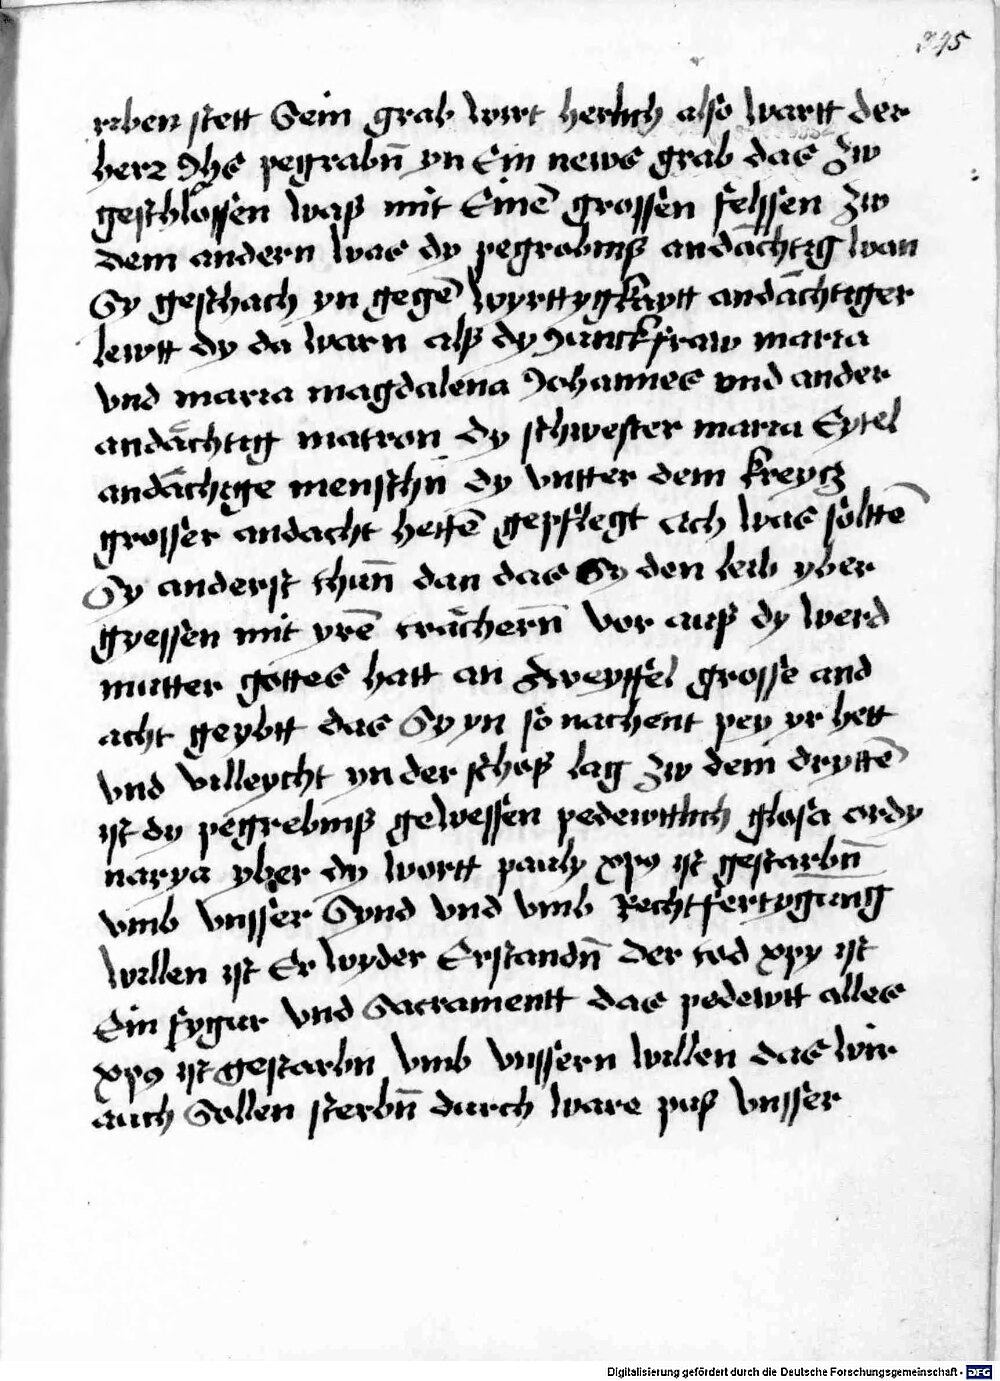 345
riben stett Sein grab wirt herlich also wartt der
herr Jhs pegrabn̄ yn Ein news grab das zw
geschlossen waß mit Einē grossen felssen zw
dem andern was dy pegrebnuß andächtig wan
Sy geschach yn gegē wyrttygkaytt andächtiger
lewtt dy da warn alß dy Junckfraw maria
vnd maria magdalena Johannes vnd ander
andächtig matron dy schwester maria Eytel
andächtige menschn dy vntter dem kreycz
grosser andacht hettē gepflegt Ach was soltē
Sy anderst thun̄ dan das Sy den leib yber
gyessen mit yrē trächern̄ vor auß dy werd
mutter gottes hatt an zweyffel grosse and
acht geybtt das Sy yn so nachent pey yr hett
vnd villeycht yn der schoß lag zw dem dryttē
ist dy pegrebnuß gewessen pedewttlich glosa ordy
narya yber dy wortt pauly xp9 ist gestarbn̄
vmb vnsser Synd vnd vmb Rechtfertygung
willen ist Er wyder Erstandn̄ Der tod xpy ist
Ein fygur vnd Sacramentt das pedewtt alles
xp9 ist gestarbn vmb vnssern willen das wir
auch Sollen sterbn̄ durch ware puß vnsser
Digitalisierung gefördert durch die Deutsche Forschungsgemeinschaft - DFG